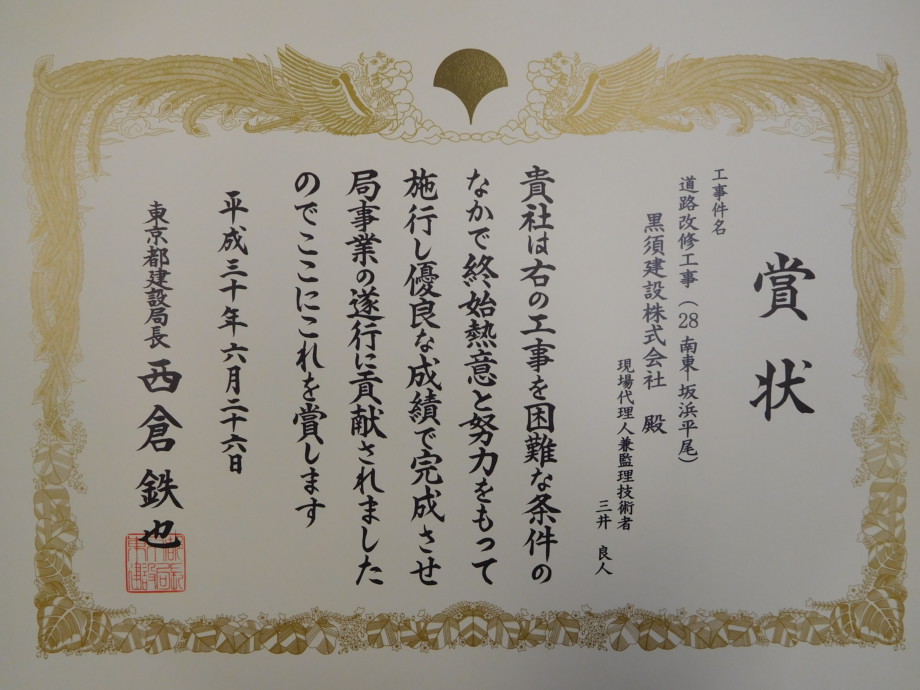 賞状
工事件名
道路改修工事(28南東ー坂浜平尾)
黒須建設株式会社 殿
現場代理人兼監理技術者
三井 良人
貴社は右の工事を困難な条件の
なかで終始熱意と努力をもって
施行し優良な成績で完成させ
局事業の遂行に貢献されました
のでここにこれを賞します
平成三十年六月二十六日
東京都建設局長 西倉鉄也